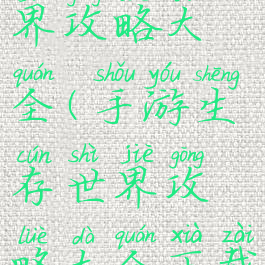 界攻略大
quán shǒu yóu shēng
全(手游生
cún shì jiè gōng
存世界攻
lüè dà quán xià zài
略大全下载